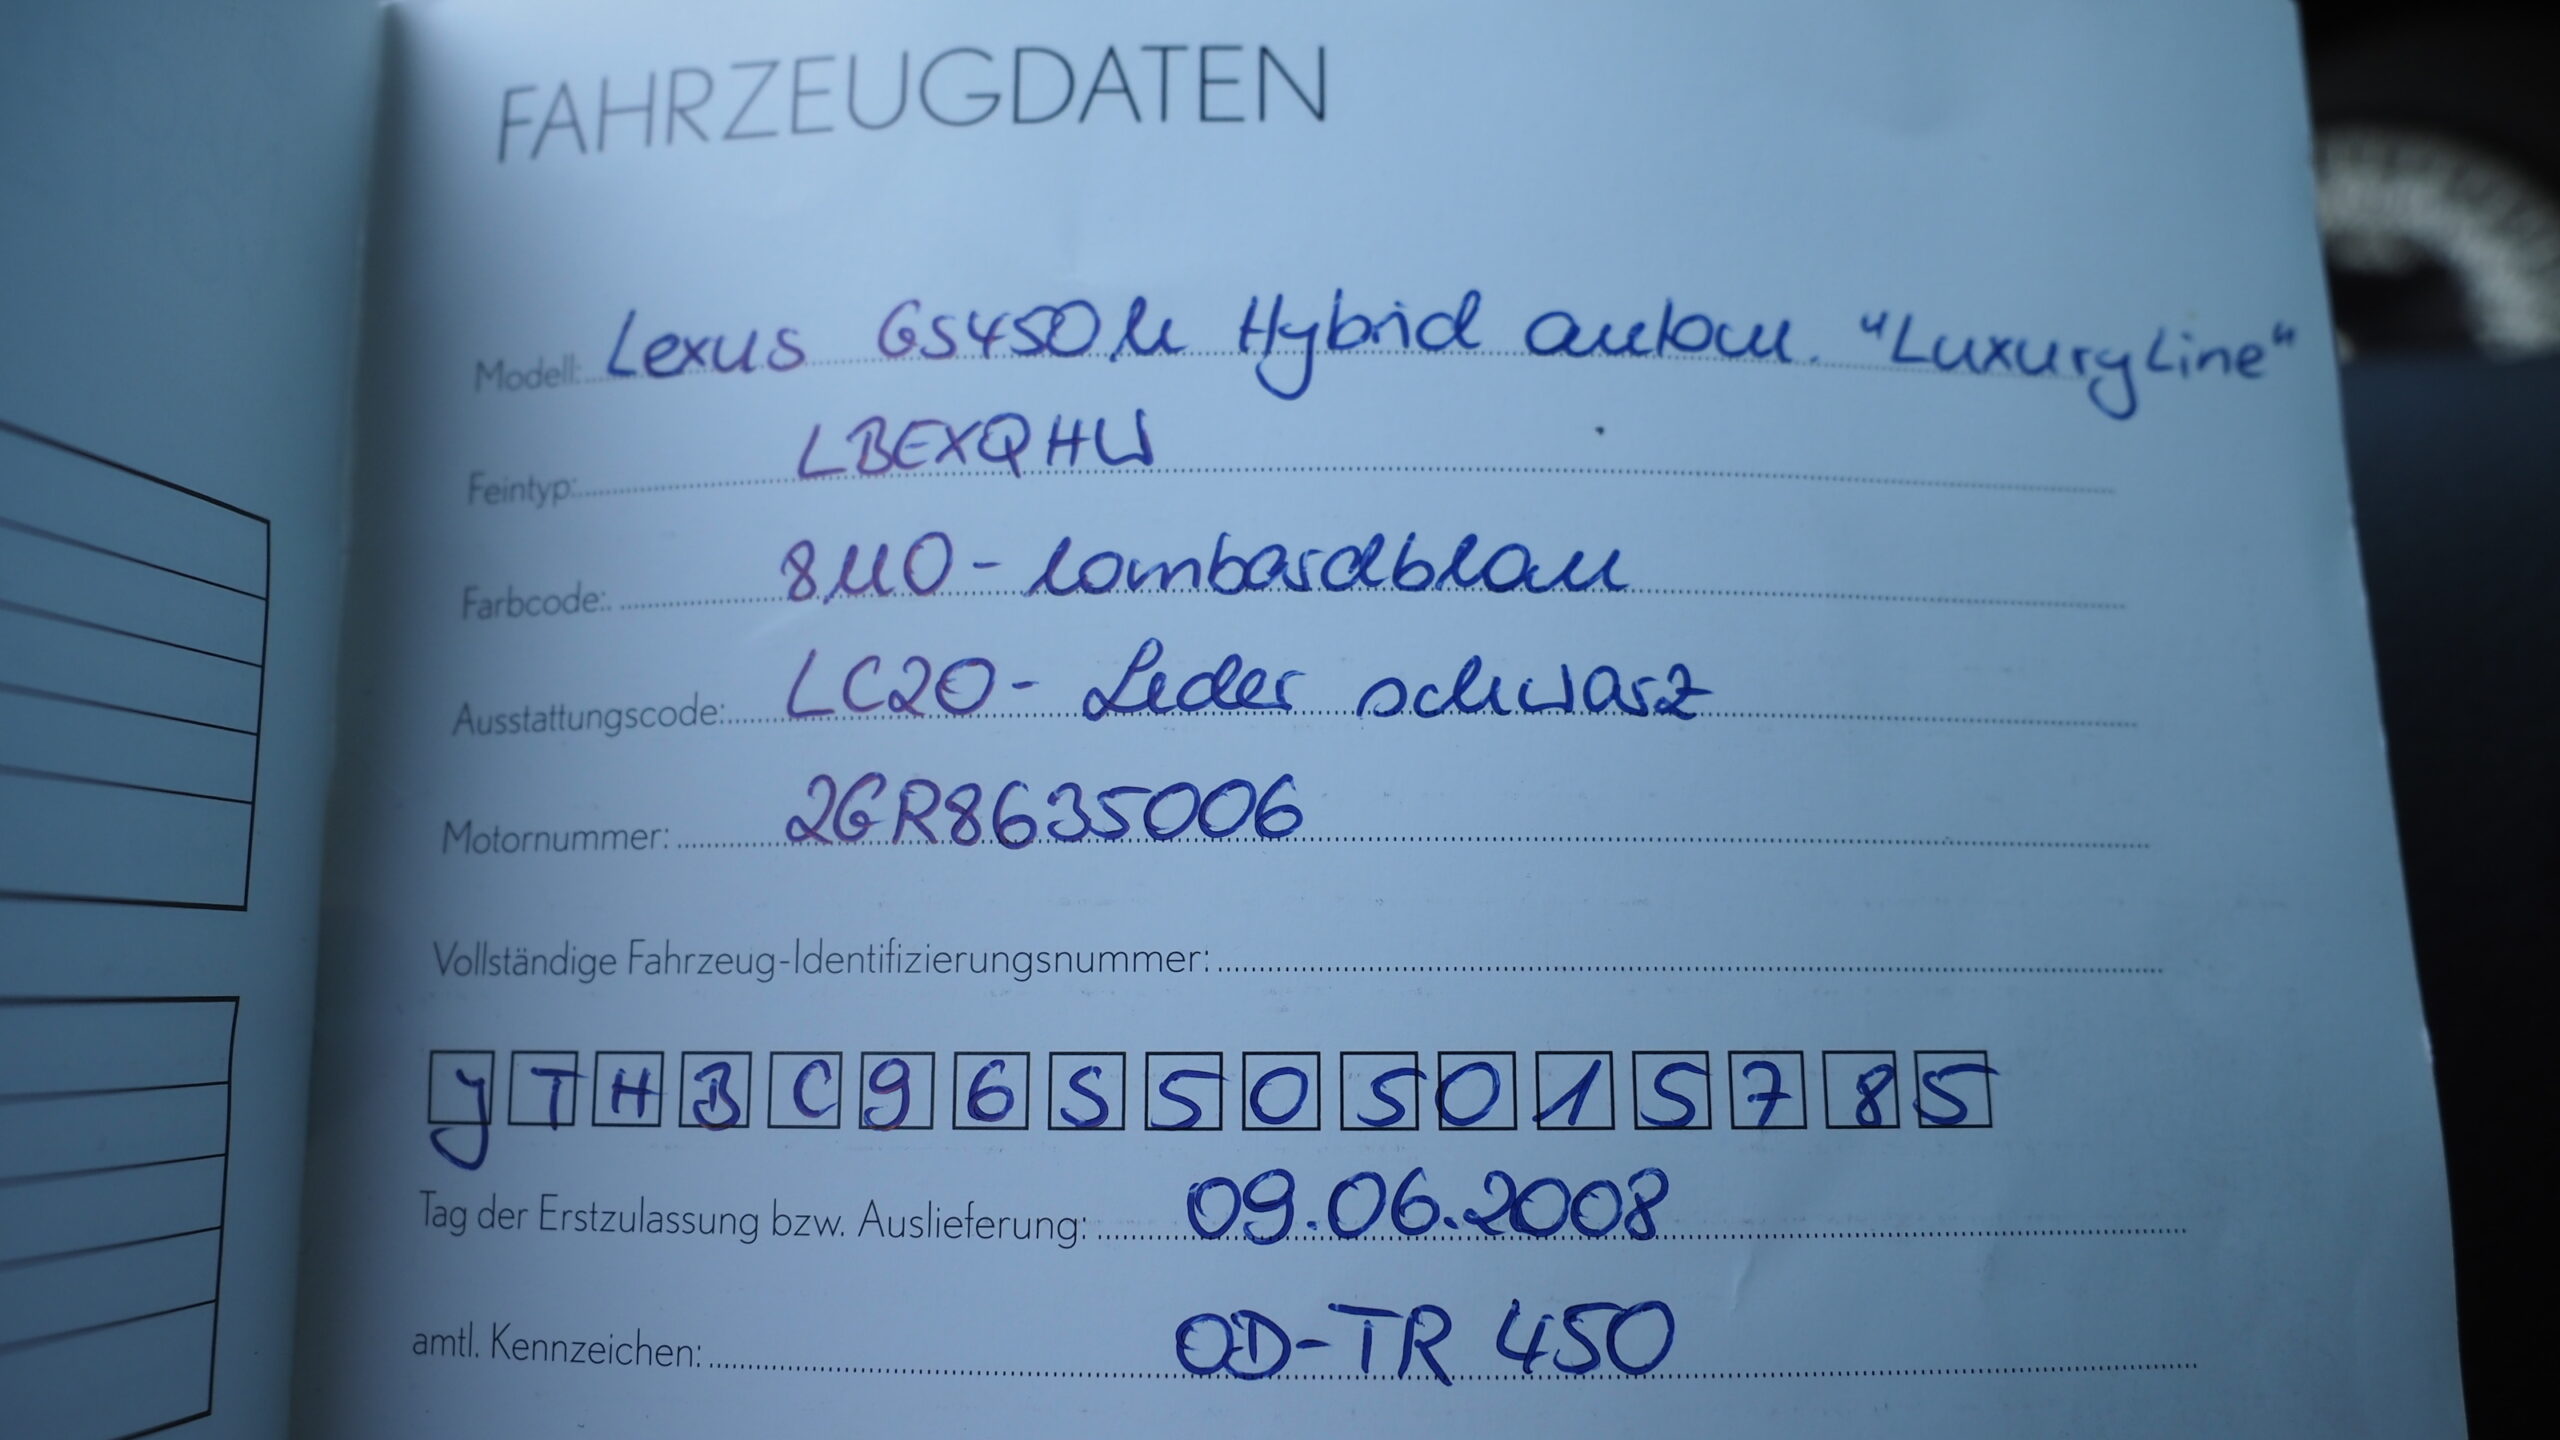 FAHRZEUGDATEN
Modell: Lexus GS450h Hybrid autom. "LuxuryLine"
Feintyp: LBEXQHW
Farbcode: 8U0 - lombardblau
Ausstattungscode: LC20 - Leder schwarz
Motornummer: 2GR8635006
Vollständige Fahrzeug-Identifizierungsnummer:
JTHBC96S505015785
Tag der Erstzulassung bzw. Auslieferung: 09.06.2008
amtl. Kennzeichen: OD-TR 450